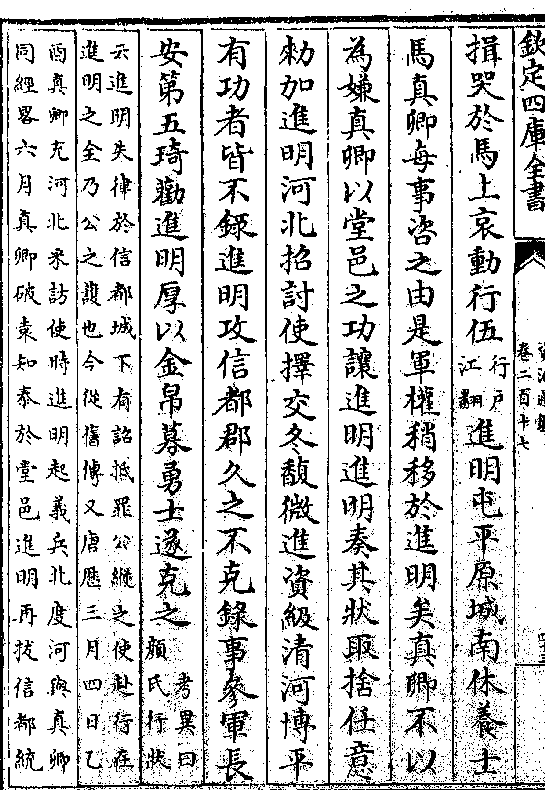 欽定四庫全書
資治通鑑
卷二百十七
揖哭於馬上哀動行伍行戶江翻進明屯平原城南休養士
馬真卿每事咨之由是軍權稍移於進明矣真卿不以
為嫌真卿以堂邑之功讓進明進明奏其狀取捨任意
勑加進明河北招討使擇交冬馥微進資級清河博平
有功者皆不錄進明攻信都郡久之不克錄事參軍長
安第五琦勸進明厚以金帛募勇士遂克之考異曰顔氏行狀
云進明失律於信都城下有詔抵罪公縱之使赴行在
進明之全乃公之護也今從舊傳又唐歷三月四日乙
酉真卿充河北采訪使時進明起義兵北度河與真卿
同經畧六月真卿破袁知泰於堂邑進明再拔信都統